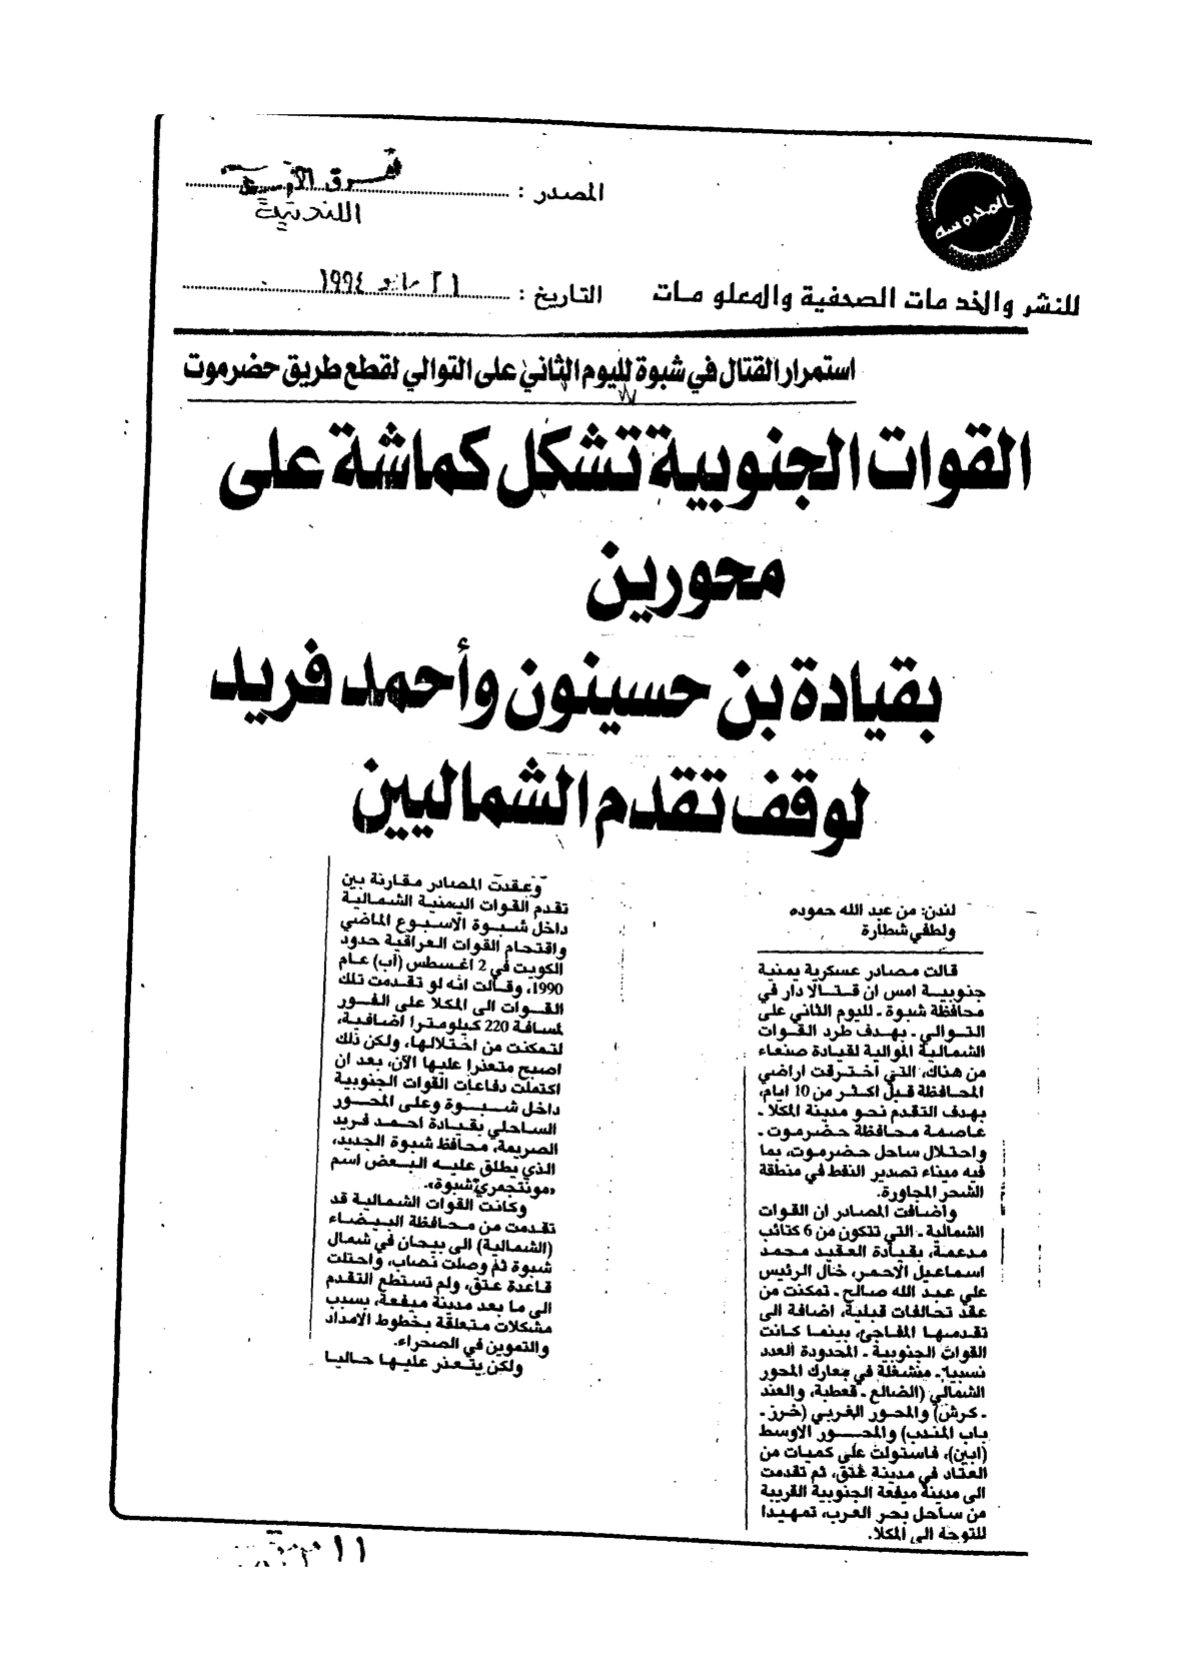 المصدر :
الشرق الأوسط
اللندنية
المحروسة
للنشر والخدمات الصحفية والمعلومات
التاريخ :
٢١ مايو ١٩٩٤
استمرار القتال في شبوة لليوم الثاني على التوالي لقطع طريق حضرموت
القوات الجنوبية تشكل كماشة على
محورين
بقيادة بن حسينون وأحمد فريد
لوقف تقدم الشماليين
لندن: من عبد الله حموده
ولطفي شطارة
قالت مصادر عسكرية يمنية
جنوبية امس ان قتالا دار في
محافظة شبوة ـ لليوم الثاني على
التوالي ـ بهدف طرد القوات
الشمالية الموالية لقيادة صنعاء
من هناك، التي اخترقت اراضي
المحافظة قبل اكثر من 10 ايام،
بهدف التقدم نحو مدينة المكلا ـ
عاصمة محافظة حضرموت ـ
واحتلال ساحل حضرموت، بما
فيه ميناء تصدير النفط في منطقة
الشحر المجاورة.
واضافت المصادر ان القوات
الشمالية ـ التي تتكون من 6 كتائب
مدعمة، بقيادة العقيد محمد
اسماعيل الاحمر، خال الرئيس
علي عبد الله صالح ـ تمكنت من
عقد تحالفات قبلية، اضافة الى
تقدمها المفاجئ، بينما كانت
القوات الجنوبية ـ المحدودة العدد
نسبيا ـ منشغلة في معارك المحور
الشمالي (الضالع ـ قعطبة، والعند
ـ كرش) والمحور الغربي (خرز ـ
باب المندب) والمحور الاوسط
(ابين)، فاستولت على كميات من
العتاد في مدينة عتق، ثم تقدمت
الى مدينة ميفعة الجنوبية القريبة
من ساحل بحر العرب، تمهيدا
للتوجة الى المكلا.
وعقدت المصادر مقارنة بين
تقدم القوات اليمنية الشمالية
داخل شبوة الاسبوع الماضي
واقتحام القوات العراقية حدود
الكويت في 2 اغسطس (آب) عام
1990، وقالت انه لو تقدمت تلك
القوات الى المكلا على الفور
لمسافة 220 كيلومترا اضافية،
لتمكنت من احتلالها، ولكن ذلك
اصبح متعذرا عليها الآن، بعد ان
اكتملت دفاعات القوات الجنوبية
داخل شبوة وعلى المحور
الساحلي بقيادة احمد فريد
الصريمة، محافظ شبوة الجديد،
الذي يطلق عليه البعض اسم
«مونتجمري شبوة».
وكانت القوات الشمالية قد
تقدمت من محافظة البيضاء
(الشمالية) الى بيحان في شمال
شبوة ثم وصلت نصاب، واحتلت
قاعدة عتق، ولم تستطع التقدم
الى ما بعد مدينة ميفعة، بسبب
مشكلات متعلقة بخطوط الامداد
والتموين في الصحراء.
ولكن يتعذر عليها حاليا